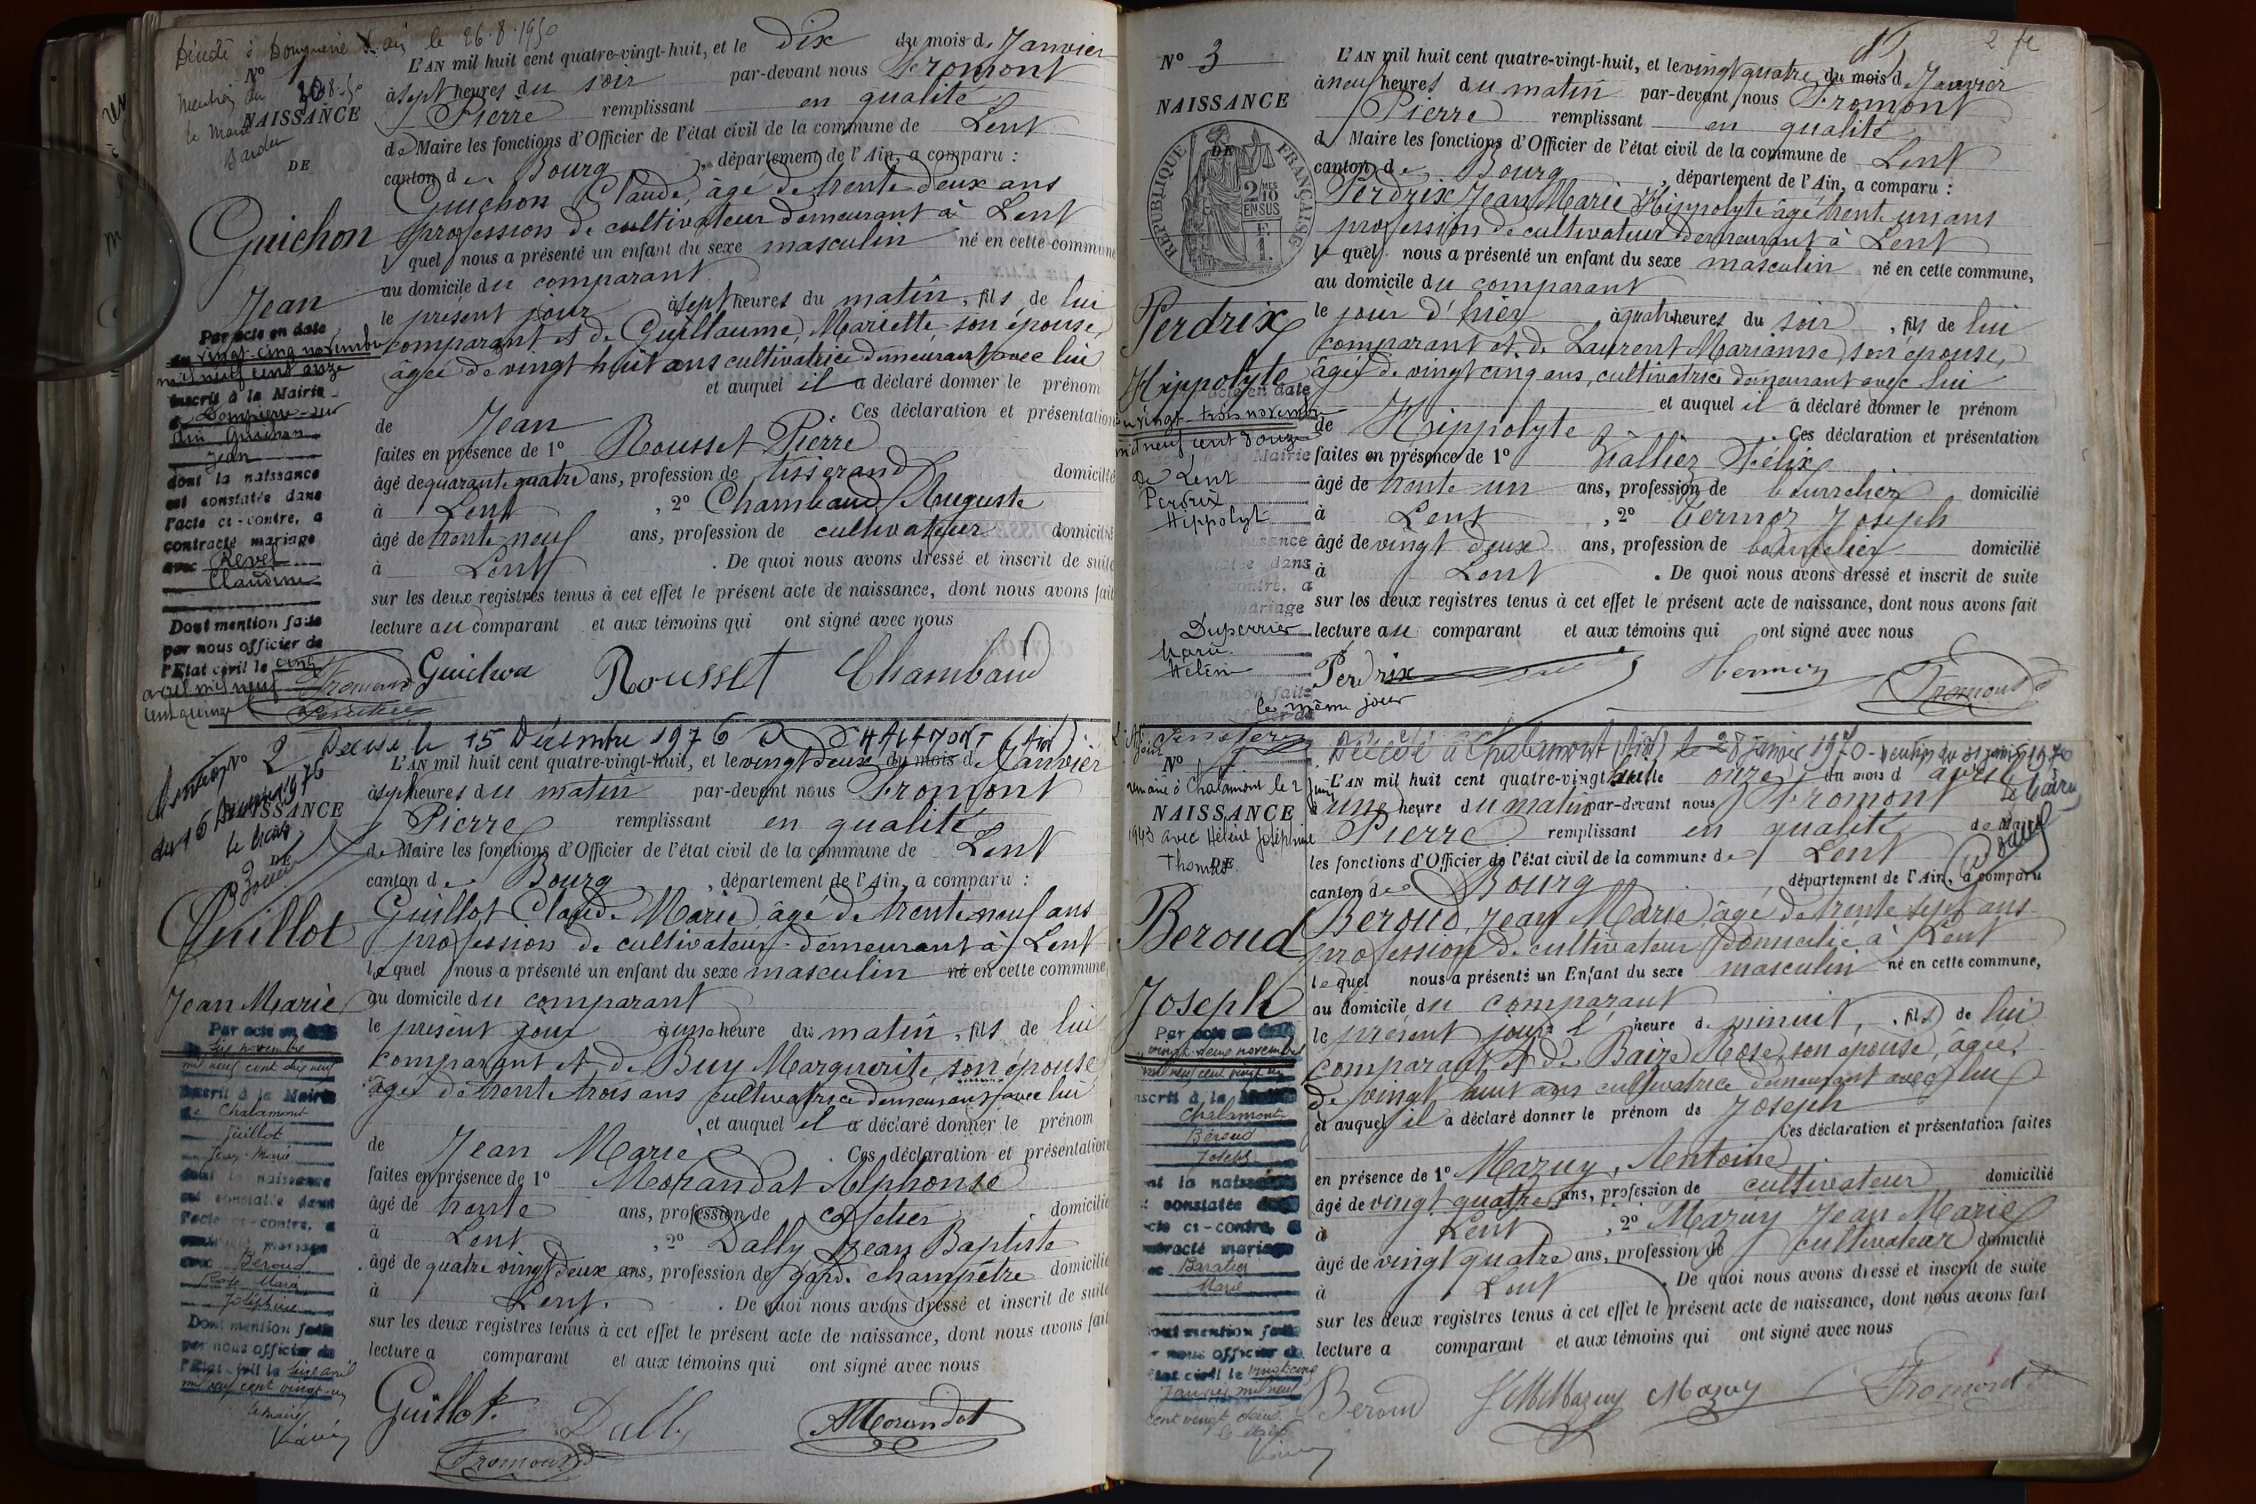 Décédé à Dompierre s. ain le 26.8.1950
Nº 1
Mention du 30.8.50
NAISSANCE
le Maire
DE
Guichon
Jean
Par acte en date
du vingt-cinq novembre
mil neuf cent onze
inscrit à la Mairie
de Dompierre-sur
Ain Guichon
Jean
dont la naissance
est constatée dans
l'acte ci-contre, a
contracté mariage
avec Revel
Claudine
Dont mention faite
par nous officier de
l'Etat civil le cinq
avril mil neuf
cent quinze
L'AN mil huit cent quatre-vingt-huit, et le dix du mois de Janvier
à sept heures du soir par-devant nous Fromont
Pierre remplissant en qualité
de Maire les fonctions d'Officier de l'état civil de la commune de Lent
canton de Bourg, département de l'Ain, a comparu :
Guichon Claude, âgé de trente deux ans
profession de cultivateur demeurant à Lent
lequel nous a présenté un enfant du sexe masculin né en cette commune
au domicile du comparant
le présent jour à sept heures du matin, fils de lui
comparant et de Guillaume, Mariette son épouse,
agée de vingt huit ans cultivatrice demeurant avec lui
et auquel il a déclaré donner le prénom
de Jean . Ces déclaration et présentation
faites en présence de 1º Rousset Pierre
âgé de quarante quatre ans, profession de tisserand domicilié
à Lent , 2º Chambaud Auguste
âgé de trente neuf ans, profession de cultivateur domicilié
à Lent . De quoi nous avons dressé et inscrit de suite
sur les deux registres tenus à cet effet le présent acte de naissance, dont nous avons fait
lecture au comparant et aux témoins qui ont signé avec nous
Fromont Guichon Rousset Chambaud
Nº 2 Décédé le 15 Décembre 1976 à Chalamont (Ain).
Mention
du 16 Décembre 1976
NAISSANCE
le Maire
DE
Guillot
Jean Marie
Par acte en date
du six novembre
mil neuf cent dix neuf
inscrit à la Mairie
de Chalamont
Guillot
Jean-Marie
dont la naissance
est constatée dans
l'acte ci-contre, a
contracté mariage
avec Beroud
Rose Maria
Joséphine
Dont mention faite
par nous officier de
l'Etat civil le six avril
mil neuf cent vingt un
Le maire
L'AN mil huit cent quatre-vingt-huit, et le vingt deux du mois de Janvier
à sept heures du matin par-devant nous Fromont
Pierre remplissant en qualité
de Maire les fonctions d'Officier de l'état civil de la commune de Lent
canton de Bourg, département de l'Ain, a comparu :
Guillot Claude Marie âgé de trente neuf ans
profession de cultivateur demeurant à Lent
lequel nous a présenté un enfant du sexe masculin né en cette commune,
au domicile du comparant
le présent jour à une heure du matin, fils de lui
comparant et de Buy Marguerite, son épouse
âgée de trente trois ans cultivatrice demeurant avec lui
et auquel il a déclaré donner le prénom
de Jean Marie . Ces déclaration et présentation
faites en présence de 1º Morandat Alphonse
âgé de trente ans, profession de cafetier domicilié
à Lent , 2º Dally Jean Baptiste
âgé de quatre vingt deux ans, profession de garde champêtre domicilié
à Lent. . De quoi nous avons dressé et inscrit de suite
sur les deux registres tenus à cet effet le présent acte de naissance, dont nous avons fait
lecture a comparant et aux témoins qui ont signé avec nous
Guillot Dally AMorandat
Fromont
2 fe
Nº 3
NAISSANCE
DE
RÉPUBLIQUE FRANÇAISE
2/10 MES
EN SUS
Perdrix
Hippolyte
acte en date
du vingt-trois novembre
mil neuf cent douze
Mairie
de Lent
Perdrix
Hippolyte
naissance
dans
contre, a
mariage
Duperrier
Marie
Hélène
mention faite
le même jour
L'AN mil huit cent quatre-vingt-huit, et le vingt quatre du mois d Janvier
à neuf heures du matin par-devant nous Fromont
Pierre remplissant en qualité
de Maire les fonctions d'Officier de l'état civil de la commune de Lent
canton de Bourg, département de l'Ain, a comparu :
Perdrix Jean Marie Hippolyte âgé trente un ans
profession de cultivateur demeurant à Lent
lequel nous a présenté un enfant du sexe masculin né en cette commune,
au domicile du comparant
le jour d'hier, à quatre heures du soir, fils de lui
comparant et de Laurent Marianne, son épouse,
âgée de vingt cinq ans, cultivatrice demeurant avec lui
et auquel il a déclaré donner le prénom
de Hippolyte . Ces déclaration et présentation
faites en présence de 1º Vallier Félix
âgé de trente un ans, profession de bourrelier domicilié
à Lent , 2º Joseph
âgé de vingt deux ans, profession de bourrelier domicilié
à Lent . De quoi nous avons dressé et inscrit de suite
sur les deux registres tenus à cet effet le présent acte de naissance, dont nous avons fait
lecture au comparant et aux témoins qui ont signé avec nous
Perdrix Fromont
Décédé à Chalamont (Ain) le 28 janvier 1970 - mention du 31 janvier 1970
Le Maire
Nº 4
remarié à Chalamont le 2 juin
NAISSANCE
1943 avec Hélène Joséphine
Thomas
DE
Beroud
Joseph
Par acte en date
vingt-deux novembre
mil neuf cent vingt un
inscrit à la Mairie
Chalamont
Béroud
Joseph
dont la naissance
est constatée dans
l'acte ci-contre, a
contracté mariage
avec Baratier
Marie
Dont mention faite
par nous officier de
l'Etat civil le vingt cinq
Janvier mil neuf
cent vingt deux
Le Maire
L'AN mil huit cent quatre-vingt huit le onze du mois d avril
à une heure du matin par-devant nous Fromont
Pierre remplissant en qualité de Maire
les fonctions d'Officier de l'état civil de la commune de Lent
canton de Bourg, département de l'Ain, a comparu
Beroud, Jean Marie âgé de trente sept ans
profession de cultivateur domicilié à Lent
lequel nous a présenté un Enfant du sexe masculin né en cette commune,
au domicile du comparant
le présent jour à l'heure de minuit, fils de lui
comparant et de Baize Rose, son épouse, âgée
de vingt huit ans cultivatrice demeurant avec lui
et auquel il a déclaré donner le prénom de Joseph
Ces déclaration et présentation faites
en présence de 1º Mazuy, Antoine
âgé de vingt quatre ans, profession de cultivateur domicilié
à Lent , 2º Mazuy Jean Marie
âgé de vingt quatre ans, profession de cultivateur domicilié
à Lent . De quoi nous avons dressé et inscrit de suite
sur les deux registres tenus à cet effet le présent acte de naissance, dont nous avons fait
lecture a comparant et aux témoins qui ont signé avec nous
Beroud Mazuy Mazuy Fromont